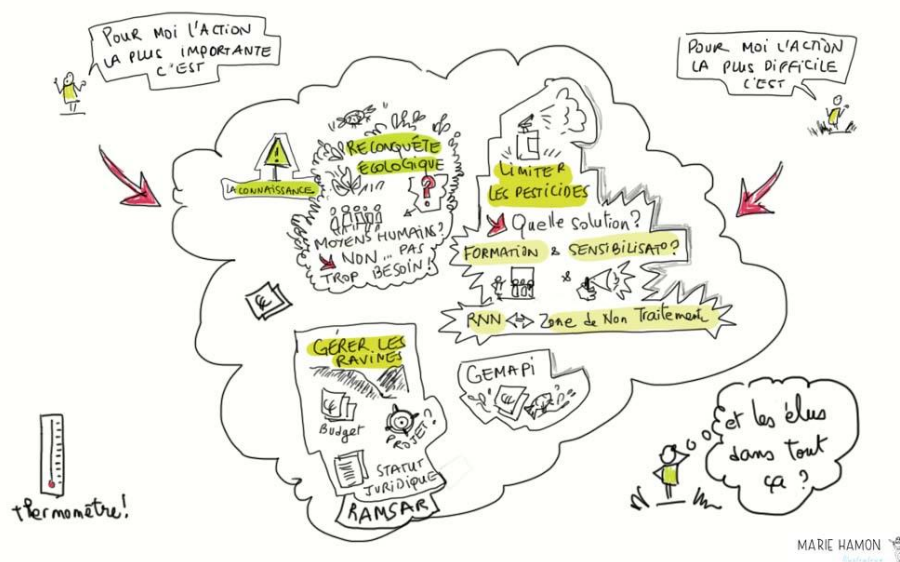 POUR MOI L'ACTION
LA PLUS IMPORTANTE
C'EST
POUR MOI L'ACTION
LA PLUS DIFFICILE
C'EST
LA CONNAISSANCE
RECONQUÊTE
ÉCOLOGIQUE
?
MOYENS HUMAINS?
NON... PAS
TROP BESOIN!
LIMITER
LES PESTICIDES
Quelle solution?
FORMATION & SENSIBILISATO?
&
RNN ⇔ Zone de Non Traitement
GÉRER LES
RAVINES
Budget
PROJET?
STATUT
JURIDIQUE
RAMSAR
GEMAPI
thermomètre!
et les élus
dans tout
ça?
MARIE HAMON